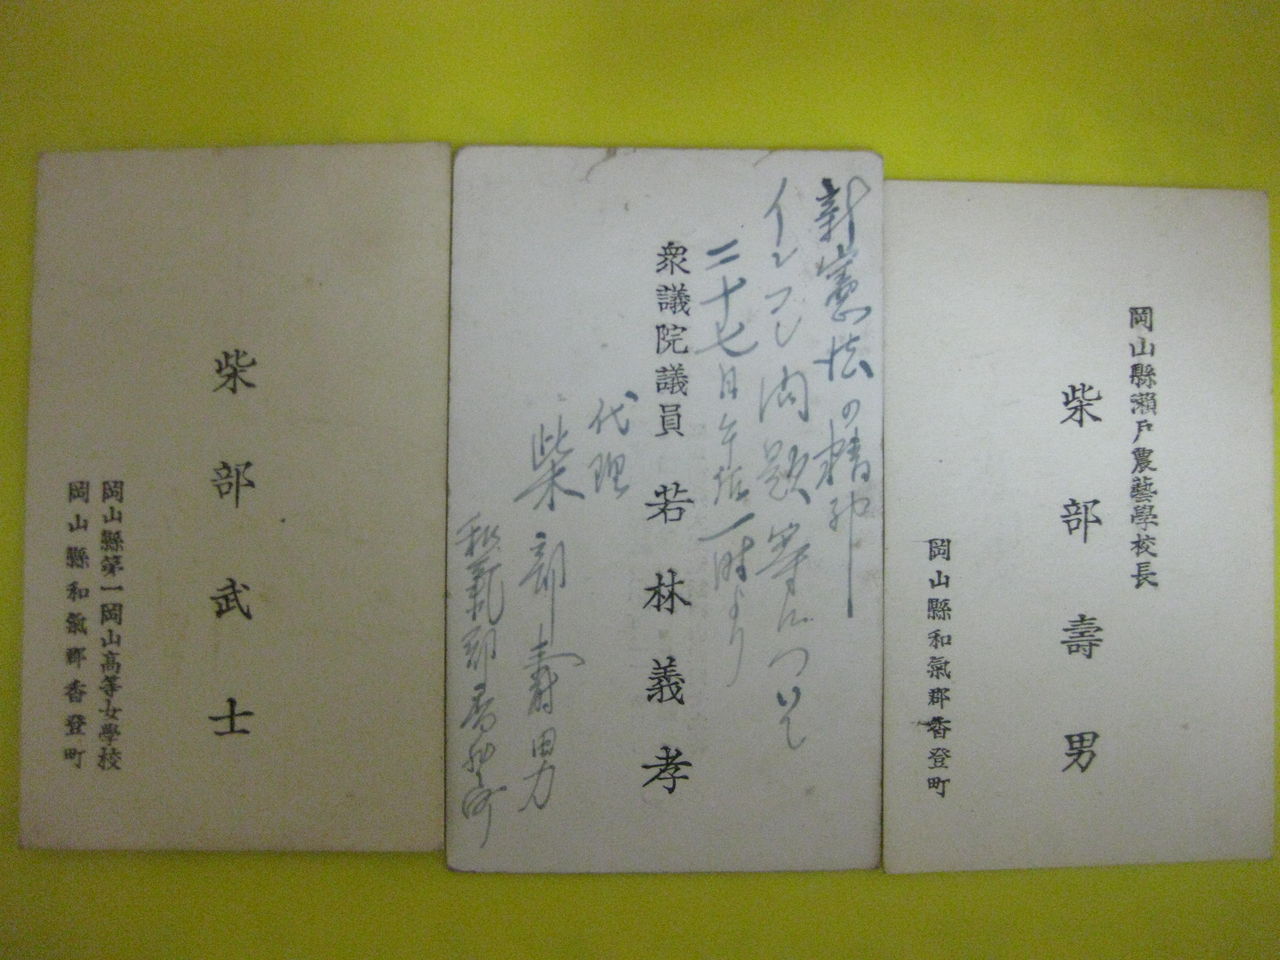 岡山縣瀬戸農藝學校長
柴部壽男
岡山縣和氣郡香登町
新憲法の精神
インフレ問題等について
二十七日午后一時より
衆議院議員 若林義孝
代理
柴部壽男
和氣郡香登町
柴部武士
岡山縣第一岡山高等女學校
岡山縣和氣郡香登町